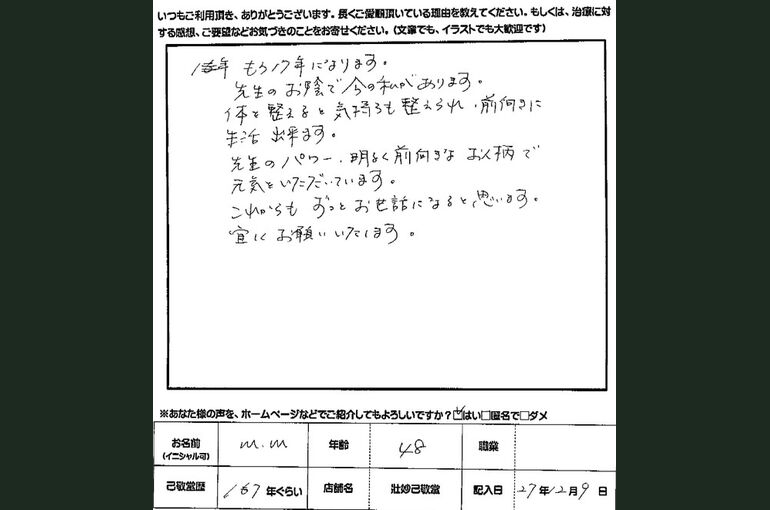 いつもご利用頂き、ありがとうございます。長くご愛顧頂いている理由を教えてください。もしくは、治療に対
する感想、ご要望などお気づきのことをお寄せください。(文章でも、イラストでも大歓迎です)
もう17年になります。
先生のお陰で今の私があります。
体を整えると気持ちも整えられ、前向きに
生活出来ます。
先生のパワー、明るく前向きなお人柄で
元気をいただいています。
これからもずっとお世話になると思います。
宜しくお願いいたします。
※あなた様の声を、ホームページなどでご紹介してもよろしいですか?☑はい□匿名で□ダメ
お名前 m.m 年齢 48 職業
(イニシャル可)
己敬堂歴 167年ぐらい 店舗名 壮妙己敬堂 記入日 27年12月9日